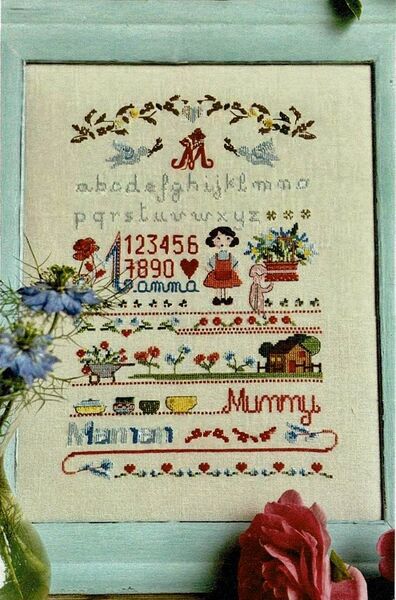 M
abcdefghijklmno
pqrstuvwxyz
123456
7890
Mamma
Mummy
Maman